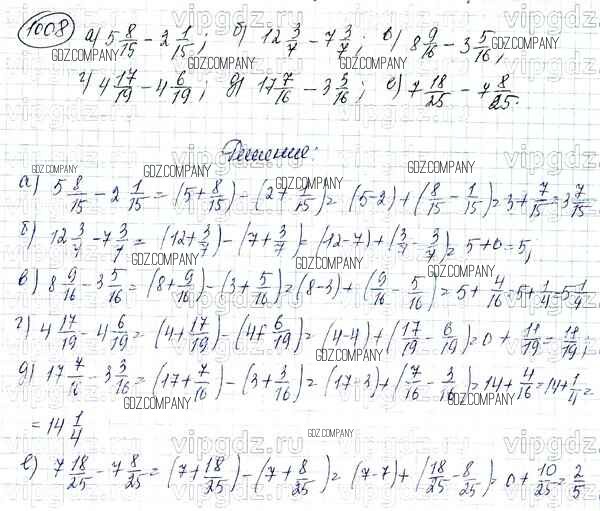 1008 а) 5 8/15 − 2 1/15; б) 12 3/7 − 7 3/7; в) 8 9/16 − 3 5/16;
г) 4 17/19 − 4 6/19; д) 17 7/16 − 3 3/16; е) 7 18/25 − 7 8/25.
Решение:
а) 5 8/15 − 2 1/15 = (5 + 8/15) − (2 + 1/15) = (5−2) + (8/15 − 1/15) = 3 + 7/15 = 3 7/15
б) 12 3/7 − 7 3/7 = (12 + 3/7) − (7 + 3/7) = (12−7) + (3/7 − 3/7) = 5 + 0 = 5;
в) 8 9/16 − 3 5/16 = (8 + 9/16) − (3 + 5/16) = (8−3) + (9/16 − 5/16) = 5 + 4/16 = 5 + 1/4 = 5 1/4
г) 4 17/19 − 4 6/19 = (4 + 17/19) − (4 + 6/19) = (4−4) + (17/19 − 6/19) = 0 + 11/19 = 11/19;
д) 17 7/16 − 3 3/16 = (17 + 7/16) − (3 + 3/16) = (17−3) + (7/16 − 3/16) = 14 + 4/16 = 14 + 1/4 =
= 14 1/4
е) 7 18/25 − 7 8/25 = (7 + 18/25) − (7 + 8/25) = (7−7) + (18/25 − 8/25) = 0 + 10/25 = 2/5
GDZ.COMPANY
vipgdz.ru